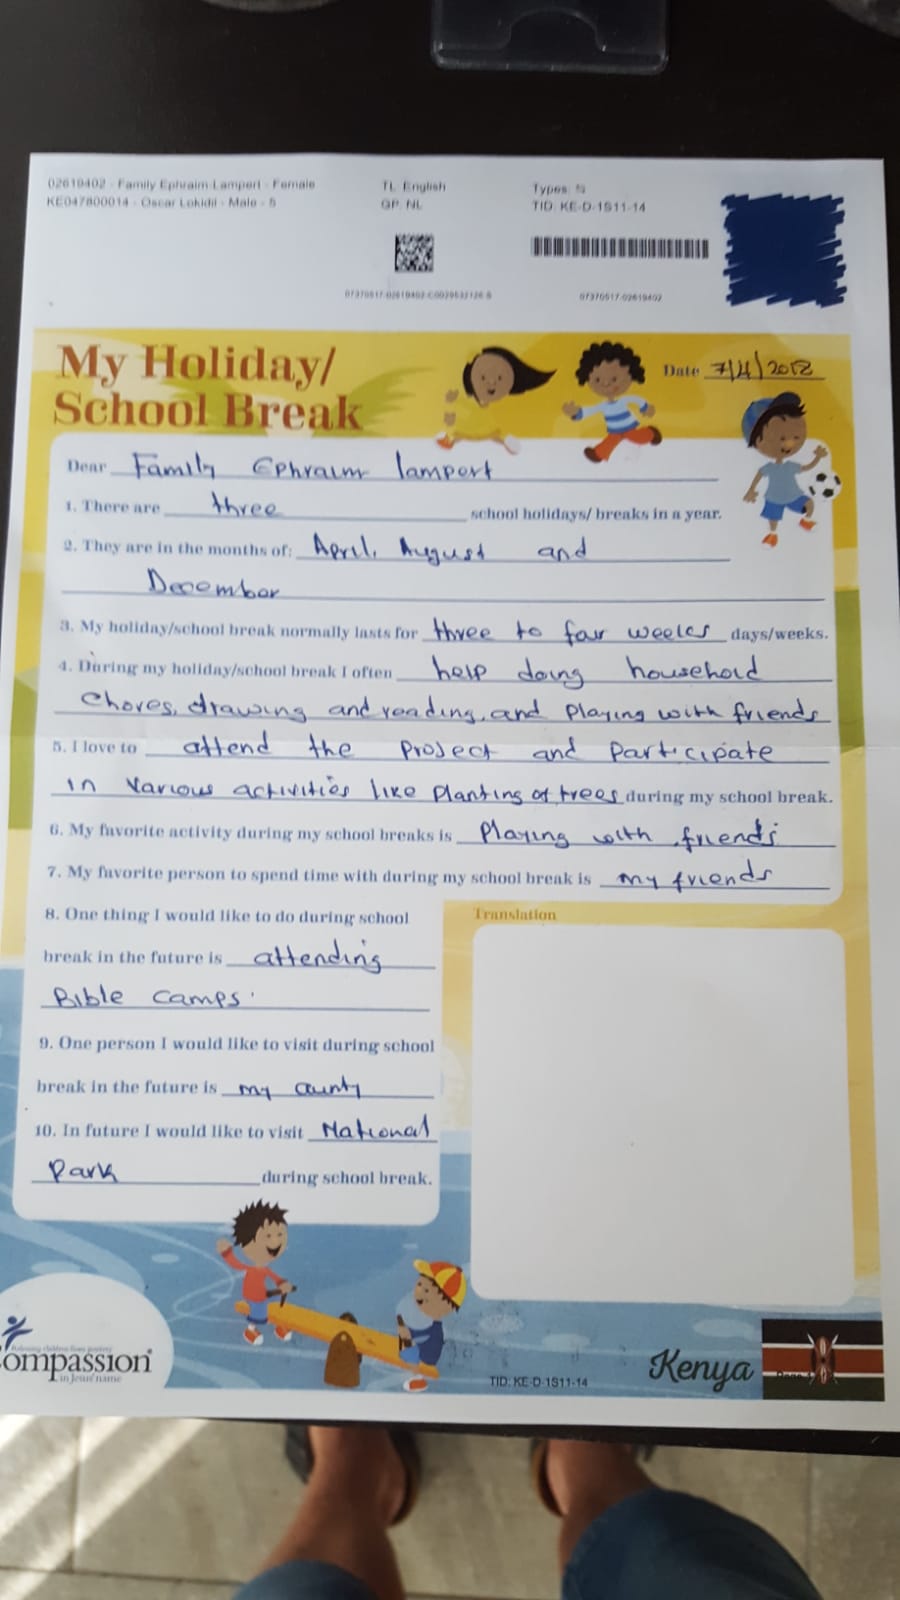 02619402 - Family Ephraim Lampert - Female
KE047800014 - Oscar Lokidii - Male - 5
TL: English
GP: NL
Types: S
TID: KE-D-1S11-14
07370517-02619402
My Holiday/
School Break
Date 7/4/2018
Dear Family Ephraim lampert
1. There are three school holidays/ breaks in a year.
2. They are in the months of: April, August and
December
3. My holiday/school break normally lasts for three to four weeks days/weeks.
4. During my holiday/school break I often help doing household
Chores, drawing and reading, and Playing with friends
5. I love to attend the Project and Participate
in various activities like Planting of trees during my school break.
6. My favorite activity during my school breaks is Playing with friends
7. My favorite person to spend time with during my school break is my friends
8. One thing I would like to do during school
break in the future is attending
Bible camps.
9. One person I would like to visit during school
break in the future is my aunty
10. In future I would like to visit National
Park during school break.
Translation
ompassion®
in Jesus' name
TID: KE-D-1S11-14
Kenya